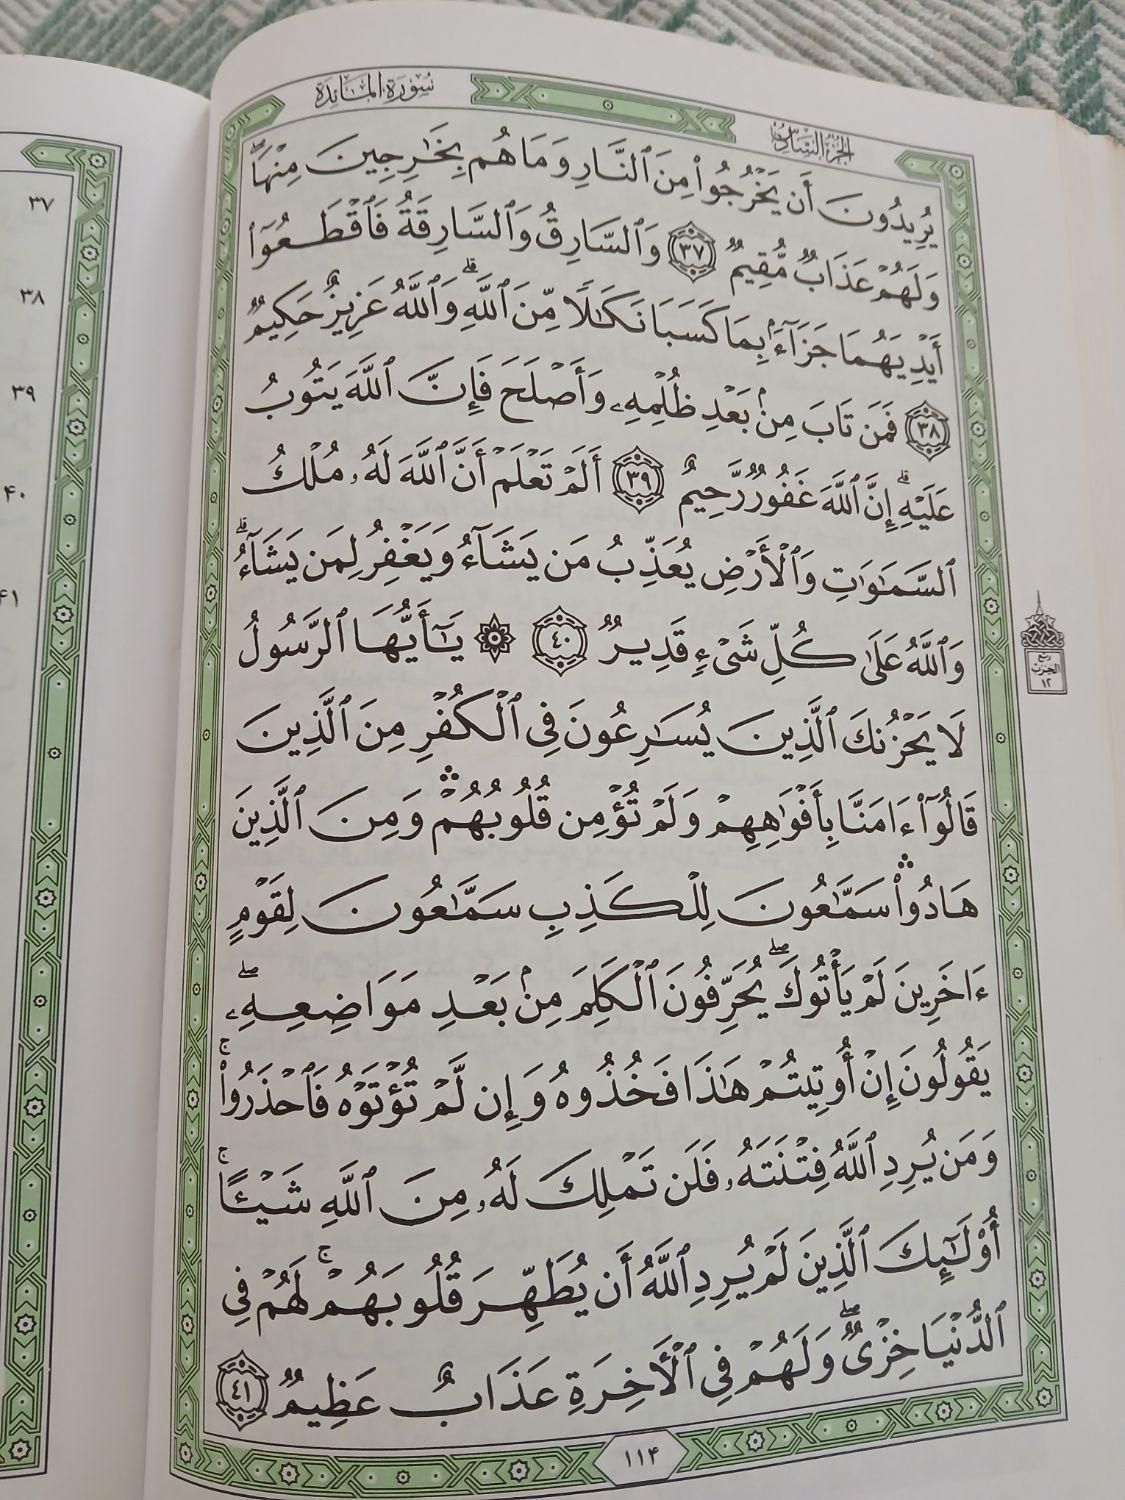 سُورَةُ المَائِدَةِ
الجُزْءُ السَّادِسُ
يُرِيدُونَ أَن يَخْرُجُوا۟ مِنَ ٱلنَّارِ وَمَا هُم بِخَٰرِجِينَ مِنْهَا ۖ
وَلَهُمْ عَذَابٌ مُّقِيمٌ ٣٧ وَٱلسَّارِقُ وَٱلسَّارِقَةُ فَٱقْطَعُوٓا۟
أَيْدِيَهُمَا جَزَآءًۢ بِمَا كَسَبَا نَكَٰلًا مِّنَ ٱللَّهِ ۗ وَٱللَّهُ عَزِيزٌ حَكِيمٌ
٣٨ فَمَن تَابَ مِنۢ بَعْدِ ظُلْمِهِۦ وَأَصْلَحَ فَإِنَّ ٱللَّهَ يَتُوبُ
عَلَيْهِ ۗ إِنَّ ٱللَّهَ غَفُورٌ رَّحِيمٌ ٣٩ أَلَمْ تَعْلَمْ أَنَّ ٱللَّهَ لَهُۥ مُلْكُ
ٱلسَّمَٰوَٰتِ وَٱلْأَرْضِ يُعَذِّبُ مَن يَشَآءُ وَيَغْفِرُ لِمَن يَشَآءُ ۗ
وَٱللَّهُ عَلَىٰ كُلِّ شَىْءٍ قَدِيرٌ ٤٠ ۞ يَٰٓأَيُّهَا ٱلرَّسُولُ
لَا يَحْزُنكَ ٱلَّذِينَ يُسَٰرِعُونَ فِى ٱلْكُفْرِ مِنَ ٱلَّذِينَ
قَالُوٓا۟ ءَامَنَّا بِأَفْوَٰهِهِمْ وَلَمْ تُؤْمِن قُلُوبُهُمْ ۛ وَمِنَ ٱلَّذِينَ
هَادُوا۟ ۛ سَمَّٰعُونَ لِلْكَذِبِ سَمَّٰعُونَ لِقَوْمٍ
ءَاخَرِينَ لَمْ يَأْتُوكَ ۖ يُحَرِّفُونَ ٱلْكَلِمَ مِنۢ بَعْدِ مَوَاضِعِهِۦ ۖ
يَقُولُونَ إِنْ أُوتِيتُمْ هَٰذَا فَخُذُوهُ وَإِن لَّمْ تُؤْتَوْهُ فَٱحْذَرُوا۟ ۚ
وَمَن يُرِدِ ٱللَّهُ فِتْنَتَهُۥ فَلَن تَمْلِكَ لَهُۥ مِنَ ٱللَّهِ شَيْـًٔا ۚ
أُو۟لَٰٓئِكَ ٱلَّذِينَ لَمْ يُرِدِ ٱللَّهُ أَن يُطَهِّرَ قُلُوبَهُمْ ۚ لَهُمْ فِى
ٱلدُّنْيَا خِزْىٌ ۖ وَلَهُمْ فِى ٱلْءَاخِرَةِ عَذَابٌ عَظِيمٌ ٤١
١١۴
ربع
الحزب
١٢
٣٧
٣٨
٣٩
۴٠
۴١